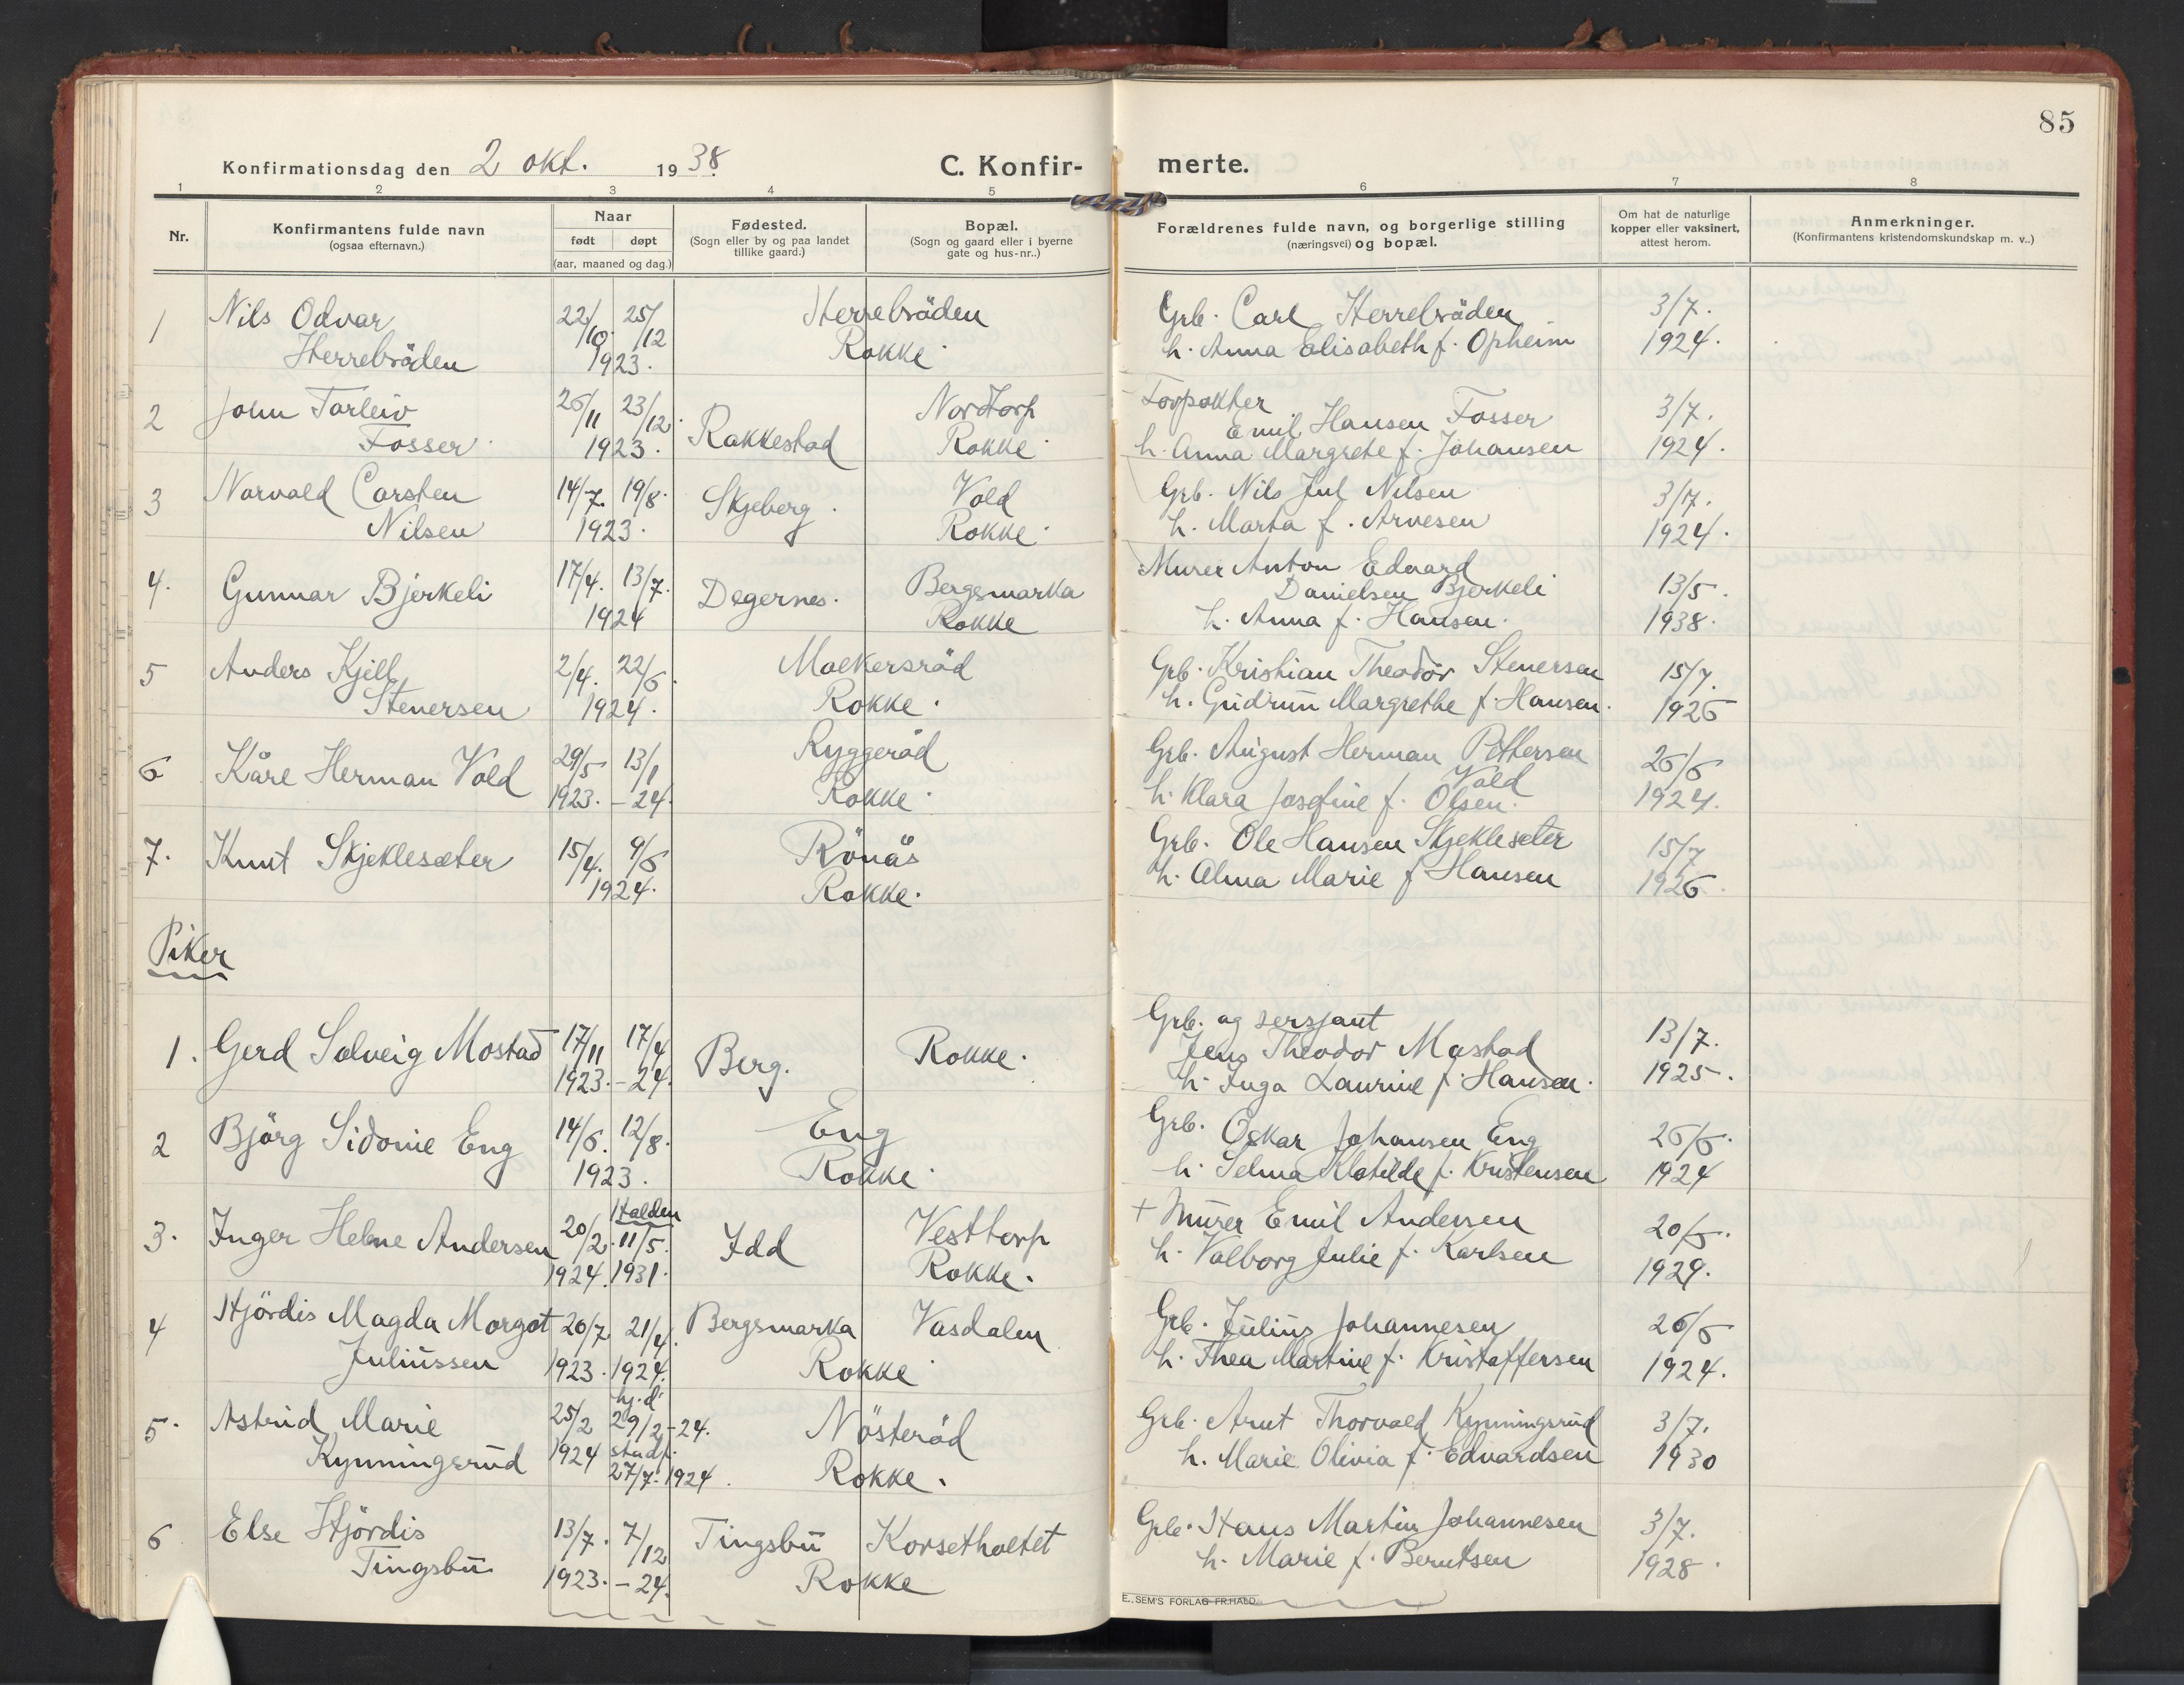 85
Konfirmationsdag den 2 okt. 1938.
C. Konfir- merte.
1 2 3 4 5 6 7 8
Nr.
Konfirmantens fulde navn
(ogsaa efternavn.)
Naar
født døpt
(aar, maaned og dag.)
Fødested.
(Sogn eller by og paa landet
tillike gaard.)
Bopæl.
(Sogn og gaard eller i byerne
gate og hus-nr..)
Forældrenes fulde navn, og borgerlige stilling
(næringsvei) og bopæl.
Om hat de naturlige
kopper eller vaksinert,
attest herom.
Anmerkninger.
(Konfirmantens kristendomskundskap m. v..)
1 Nils Odvar 22/10 25/12 Herrebröden Grb. Carl Herrebröden 3/7.
Herrebröden 1923. Rokke. h. Anna Elisabeth f. Opheim 1924.
2 John Torleiv 26/11 23/12. Nordtorp Torpakter 3/7.
Fosser. 1923. Rakkestad Rokke. Emil Hansen Fosser
h. Anna Margrete f. Johansen 1924.
3 Norvald Carsten 14/7. 19/8. Skjeberg. Vold Grb. Nils Jul Nilsen 3/7.
Nilsen 1923. Rokke. h. Marta f. Arvesen 1924.
4. Gunnar Bjerkeli 17/4. 13/7. Degernes. Bergsmarka Murer Anton Edvard
1924 Rokke Danielsen Bjerkeli 13/5.
h. Anna f. Hansen. 1938.
5 Anders Kjell 2/4. 22/6. Moekersröd Grb. Kristian Theodor Stenersen 15/7.
Stenersen 1924. Rokke. h. Gudrun Margrethe f. Hansen. 1926
6 Kåre Herman Vold 29/5 13/1 Ryggeröd Grb. August Herman Pettersen 26/6
1923. - 24. Rokke. Vold
h. Klara Josefine f. Olsen. 1924.
7. Knut Skjeklesæter 15/4. 9/6 Rönås Grb. Ole Hansen Skjeklesæter 15/7
1924. Rokke. h. Alma Marie f Hansen 1926.
Piker
1. Gerd Solveig Mostad 17/11 17/4 Berg. Rokke. Grb. og sersjant 13/7.
1923. - 24. Jens Theodor Mostad
h. Inga Laurine f. Hansen. 1925.
2 Bjørg Sidonie Eng 14/6. 12/8. Eng Grb. Oskar Johansen Eng 26/6.
1923. Rokke. h. Selma Klotilde f. Kristensen 1924
3. Inger Helene Andersen 20/2. Halden 11/5. Idd Vesttorp + Murer Emil Andersen 20/6.
1924. 1931. Rokke. h. Valborg Julie f. Karlsen 1929.
4 Hjördis Magda Margot 20/7 21/4. Bergsmarka Vasdalen Grb. Julius Johannesen 26/6
Juliussen 1923. 1924. Rokke. h. Thea Martine f. Kristoffersen 1924.
5. Astrid Marie 25/2 hj.d. 29/2-24. Nösteröd Grb. Arnt Thorvald Kynningsrud 3/7.
Kynningsrud 1924 stadf. 27/7. 1924. Rokke. h. Marie Olivia f. Edvardsen 1930
6 Else Hjördis 13/7. 7/12 Tingsbu Korsetholtet Grb. Hans Martin Johannesen 3/7.
Tingsbu 1923. - 24. Rokke h. Marie f. Berntsen 1928.
E. SEM'S FORLAG FR.HALD.